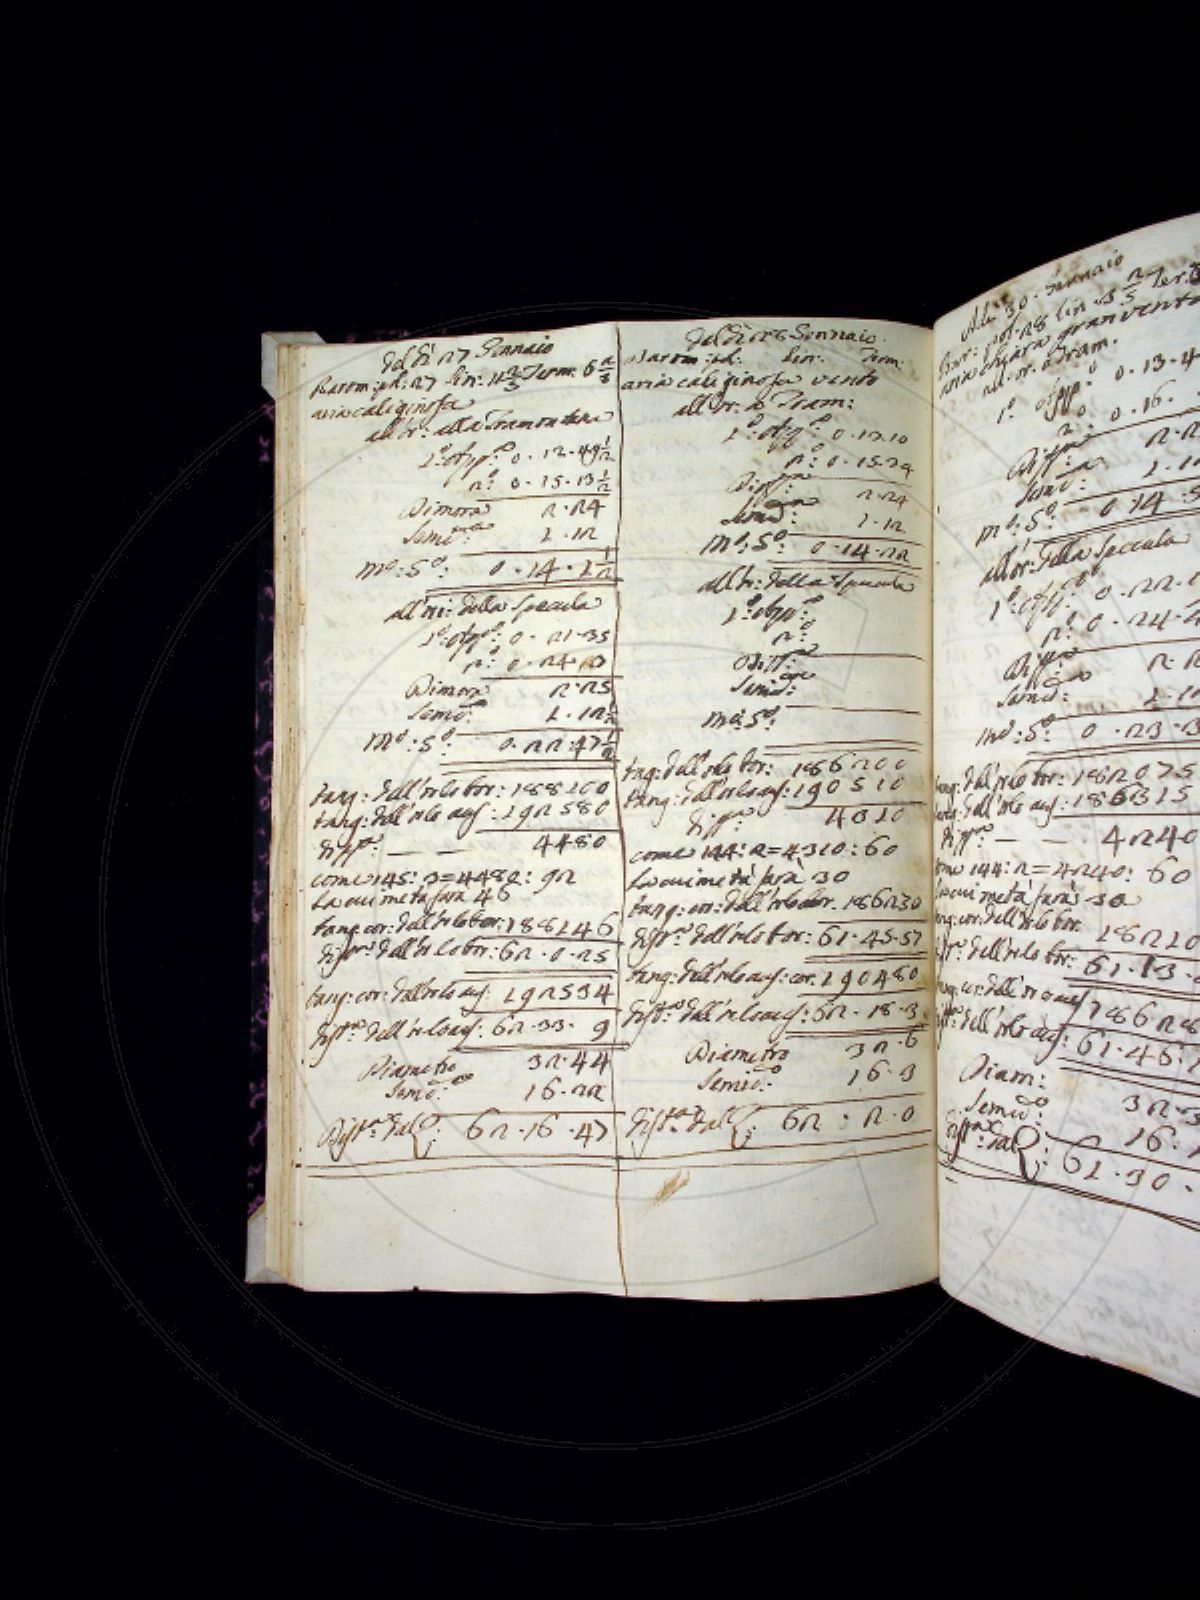 Del dì 27 Gennaio
Barom: pol: 27 lin: 11 2/3 Term. 6 2/3
aria caliginosa
all'or: alla Tramontana
1.º app.º 0 · 12 · 49 1/2
2.º 0 · 15 · 13 1/2
Dimora 2 · 24
Semid.ª 1 · 12
M.º: S.º: 0 · 14 · 1 1/2
all'or: della Specula
1.º app.º: 0 · 21 · 35
2.º: 0 · 24 · 0
Dimora 2 · 25
Semid.ª 1 · 12 1/2
M.º: S.º: 0 · 22 : 47 1/2
tang: dell'orlo bor: 188100
tang: dell'orlo aus: 192580
diff.ª — — 4480
come 145: 3 = 4480: 92
la cui metà sarà 46
tang: cor: dell'orlo bor: 188146
dist.ª dell'orlo bor: 62 · 0 · 25
tang: cor: dell'orlo aus: 192534
dist.ª dell'orlo aus: 62 · 33 · 9
Diametro 32 · 44
Semid.º 16 · 22
Dist.ª dal : 62 · 16 · 47
Del dì 28 Gennaio
Barom: pol: lin: Term:
aria caliginosa vento
all'or: a Tram:
1.º app.º 0 · 13 10
2.º 0 · 15 · 34
Diff.ª: 2 · 24
Semid.: 1 · 12
M.º: S.º: 0 · 14 · 22
all'or: della Specula
1.º app.º
2.º
Diff.ª:
Semid.:
M.º: S.º:
tang: dell'orlo bor: 186200
tang: dell'orlo aus: 190510
diff.ª 4310
come 144: 2 = 4310: 60
la cui metà sarà 30
tang: cor: dell'orlo bor. 186230
dist.ª dell'orlo bor: 61 · 45 · 57
tang: dell'orlo aus: cor. 190480
dist.ª dell'orlo aus: 62 · 18 · 3
Diametro 32 · 6
Semid.º 16 · 3
dist.ª dal : 62 : 2 · 0
A dì 30 · Gennaio
Bar: pol: 28 lin · 3 2/5 Ter.
aria chiara gran vento
all'or: a Tram.
1.º app.º 0 · 13 · 4
2.º 0 · 16 ·
Diff.ª 2 · 2
Semid.: 1 · 1
M.º: S.º: 0 14 · 5
all'or: della Specula
1.º app.º 0 · 22 · 1
2.º 0 · 24 · 2
Diff.ª 2 · 2
Semid.: 1 · 1
M.º: S.º: 0 · 23 · 3
tang: dell'orlo bor: 182075
tang: dell'orlo aus: 186315
diff.ª — — · 4240
come 144: 2 = 4240: 60
la cui metà sarà 30
tang: cor: dell'orlo bor: 18210
dist.ª dell'orlo bor: 61 · 13 ·
tang: cor: dell'orlo aus 18628
dist.ª dell'orlo aus: 61 · 46 ·
Diam: 32 ·
Semid.º: 16 ·
Dist.ª dal : 61 · 30 ·